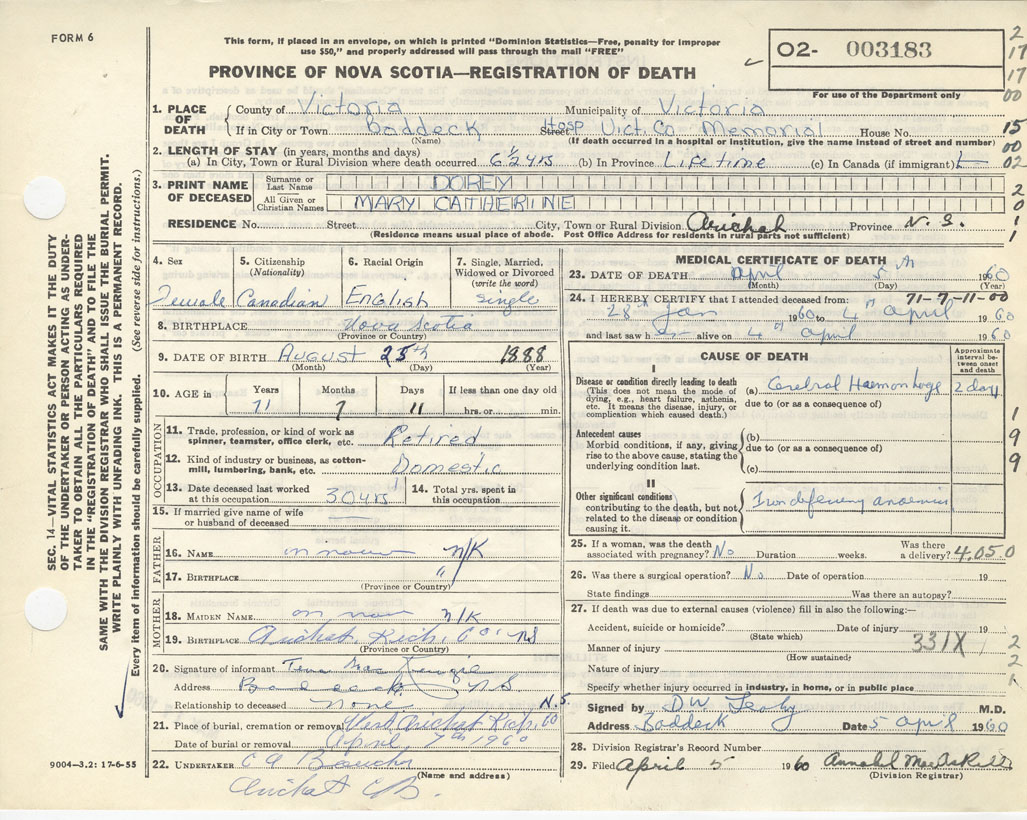 FORM 6
This form, if placed in an envelope, on which is printed "Dominion Statistics—Free, penalty for improper
use $50," and properly addressed will pass through the mail "FREE"
PROVINCE OF NOVA SCOTIA—REGISTRATION OF DEATH
02- 003183
For use of the Department only
2
17
17
00
15
00
02
2
0
1
1
1. PLACE OF DEATH
County of Victoria Municipality of Victoria
If in City or Town Baddeck Street Hosp Vict. Co Memorial House No.
(Name) (If death occurred in a hospital or institution, give the name instead of street and number)
2. LENGTH OF STAY (in years, months and days)
(a) In City, Town or Rural Division where death occurred 6 1/2 yrs (b) In Province Lifetime (c) In Canada (if immigrant)
3. PRINT NAME OF DECEASED
Surname or Last Name DOREY
All Given or Christian Names MARY CATHERINE
RESIDENCE No. Street City, Town or Rural Division Arichat Province N. S.
(Residence means usual place of abode. Post Office Address for residents in rural parts not sufficient)
4. Sex Female
5. Citizenship (Nationality) Canadian
6. Racial Origin English
7. Single, Married, Widowed or Divorced (write the word) single
8. BIRTHPLACE Nova Scotia
(Province or Country)
9. DATE OF BIRTH August 25th 1888
(Month) (Day) (Year)
10. AGE in Years 71 Months 7 Days 11 If less than one day old hrs. or min.
OCCUPATION
11. Trade, profession, or kind of work as spinner, teamster, office clerk, etc. Retired
12. Kind of industry or business, as cotton-mill, lumbering, bank, etc. Domestic
13. Date deceased last worked at this occupation 30 yrs
14. Total yrs. spent in this occupation
15. If married give name of wife or husband of deceased
FATHER
16. NAME N/K
17. BIRTHPLACE "
(Province or Country)
MOTHER
18. MAIDEN NAME N/K
19. BIRTHPLACE Arichat, Rich. Co. NS
(Province or Country)
20. Signature of informant Tena MacKenzie
Address Baddeck NS
Relationship to deceased None N.S.
21. Place of burial, cremation or removal West Arichat Rich. Co
Date of burial or removal April 7th 1960
22. UNDERTAKER
(Name and address)
Arichat C.B.
MEDICAL CERTIFICATE OF DEATH
23. DATE OF DEATH April 5th 1960
(Month) (Day) (Year)
71-7-11-00
24. I HEREBY CERTIFY that I attended deceased from:
28th Jan 1960 to 4th April 1960
and last saw h er alive on 4th April 1960
CAUSE OF DEATH
Approximate interval between onset and death
I
Disease or condition directly leading to death
(This does not mean the mode of dying, e.g., heart failure, asthenia, etc. It means the disease, injury, or complication which caused death.)
(a) Cerebral Haemorrhage 2 days
due to (or as a consequence of)
Antecedent causes
Morbid conditions, if any, giving rise to the above cause, stating the underlying condition last.
(b)
due to (or as a consequence of)
(c)
II
Other significant conditions contributing to the death, but not related to the disease or condition causing it.
Iron deficiency anaemia
1
9
9
25. If a woman, was the death associated with pregnancy? No Duration weeks. Was there a delivery? 4.05.0
26. Was there a surgical operation? No Date of operation 19
State findings Was there an autopsy?
27. If death was due to external causes (violence) fill in also the following:—
Accident, suicide or homicide? Date of injury 19
(State which)
Manner of injury 331X
(How sustained)
Nature of injury
2
2
1
Specify whether injury occurred in industry, in home, or in public place
Signed by D.W. M.D.
Address Baddeck Date 5 April 1960
28. Division Registrar's Record Number
29. Filed April 5 1960 Annabel MacAskill
(Division Registrar)
SEC. 14—VITAL STATISTICS ACT MAKES IT THE DUTY
OF THE UNDERTAKER OR PERSON ACTING AS UNDER-
TAKER TO OBTAIN ALL THE PARTICULARS REQUIRED
IN THE "REGISTRATION OF DEATH" AND TO FILE THE
SAME WITH THE DIVISION REGISTRAR WHO SHALL ISSUE THE BURIAL PERMIT.
WRITE PLAINLY WITH UNFADING INK. THIS IS A PERMANENT RECORD.
Every item of information should be carefully supplied. (See reverse side for instructions.)
9004—3.2: 17-6-55